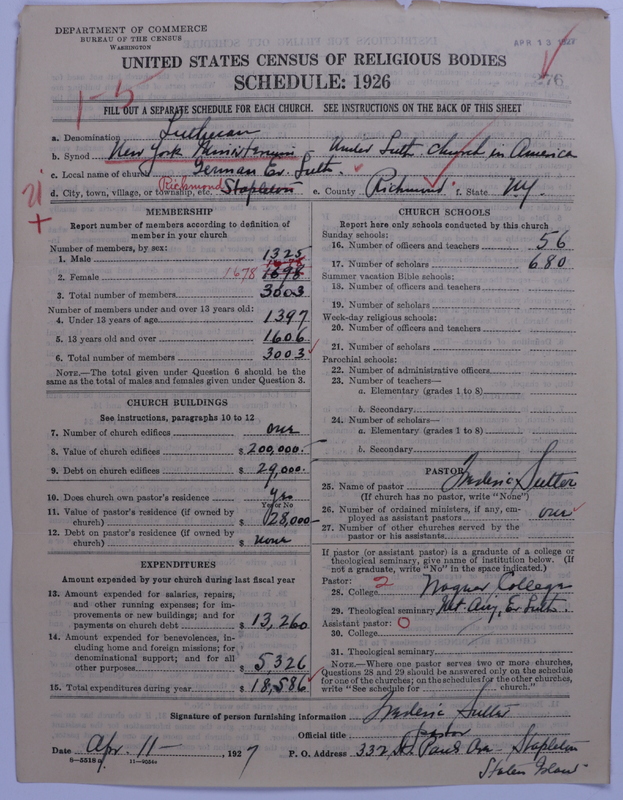 DEPARTMENT OF COMMERCE
BUREAU OF THE CENSUS
WASHINGTON
APR 13 1927
UNITED STATES CENSUS OF RELIGIOUS BODIES
SCHEDULE: 1926
276
1-5
FILL OUT A SEPARATE SCHEDULE FOR EACH CHURCH. SEE INSTRUCTIONS ON THE BACK OF THIS SHEET
a. Denomination Lutheran
b. Synod New York Ministerium Under Luth. Church in America
c. Local name of church German Ev. Luth.
d. City, town, village, or township, etc. Richmond Stapleton e. County Richmond f. State NY
MEMBERSHIP
Report number of members according to definition of member in your church
Number of members, by sex:
1. Male 1325
2. Female 1678 1698 1678
3. Total number of members 3003
Number of members under and over 13 years old:
4. Under 13 years of age 1397
5. 13 years old and over 1606
6. Total number of members 3003
NOTE.—The total given under Question 6 should be the same as the total of males and females given under Question 3.
CHURCH BUILDINGS
See instructions, paragraphs 10 to 12
7. Number of church edifices one
8. Value of church edifices $ 200,000.
9. Debt on church edifices $ 29,000.
10. Does church own pastor's residence yes
Yes or No
11. Value of pastor's residence (if owned by church) $ 28,000
12. Debt on pastor's residence (if owned by church) $ none
EXPENDITURES
Amount expended by your church during last fiscal year
13. Amount expended for salaries, repairs, and other running expenses; for improvements or new buildings; and for payments on church debt $ 13,260
14. Amount expended for benevolences, including home and foreign missions; for denominational support; and for all other purposes $ 5326
15. Total expenditures during year $ 18,586
CHURCH SCHOOLS
Report here only schools conducted by this church
Sunday schools:
16. Number of officers and teachers 56
17. Number of scholars 680
Summer vacation Bible schools:
18. Number of officers and teachers
19. Number of scholars
Week-day religious schools:
20. Number of officers and teachers
21. Number of scholars
Parochial schools:
22. Number of administrative officers
23. Number of teachers—
a. Elementary (grades 1 to 8)
b. Secondary
24. Number of scholars—
a. Elementary (grades 1 to 8)
b. Secondary
PASTOR
25. Name of pastor Frederic Sutter
(If church has no pastor, write "None")
26. Number of ordained ministers, if any, employed as assistant pastors one
27. Number of other churches served by the pastor or his assistants
If pastor (or assistant pastor) is a graduate of a college or theological seminary, give name of institution below. (If not a graduate, write "No" in the space indicated.)
Pastor: 2
28. College Wagner College
29. Theological seminary Mt Airy, Ev Luth.
Assistant pastor: 0
30. College
31. Theological seminary
NOTE.—Where one pastor serves two or more churches, Questions 28 and 29 should be answered only on the schedule for one of the churches; on the schedules for the other churches, write "See schedule for church."
Signature of person furnishing information Frederic Sutter
Official title Pastor
Date Apr. 11 - , 1927
P. O. Address 332 St. Pauls Ave - Stapleton
Staten Island
8—5518 11—9054a